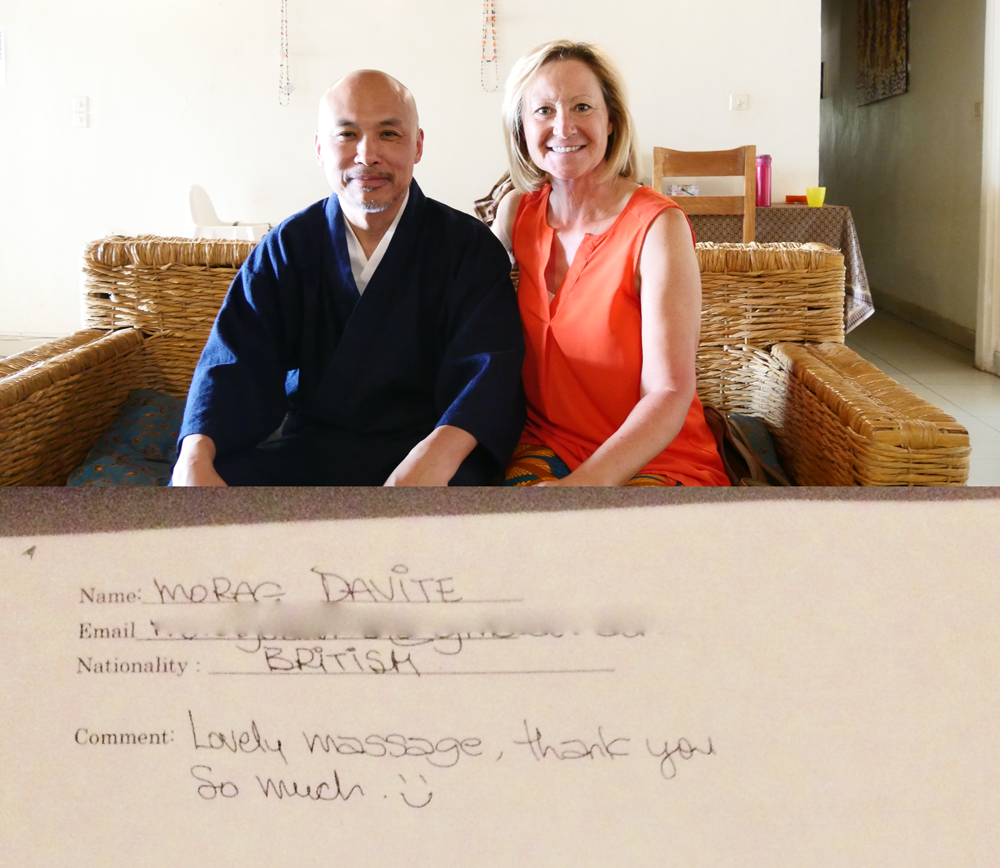 Name: MORAG DAVITE
Email
Nationality : BRITISH
Comment: Lovely massage, thank you
So much. :)